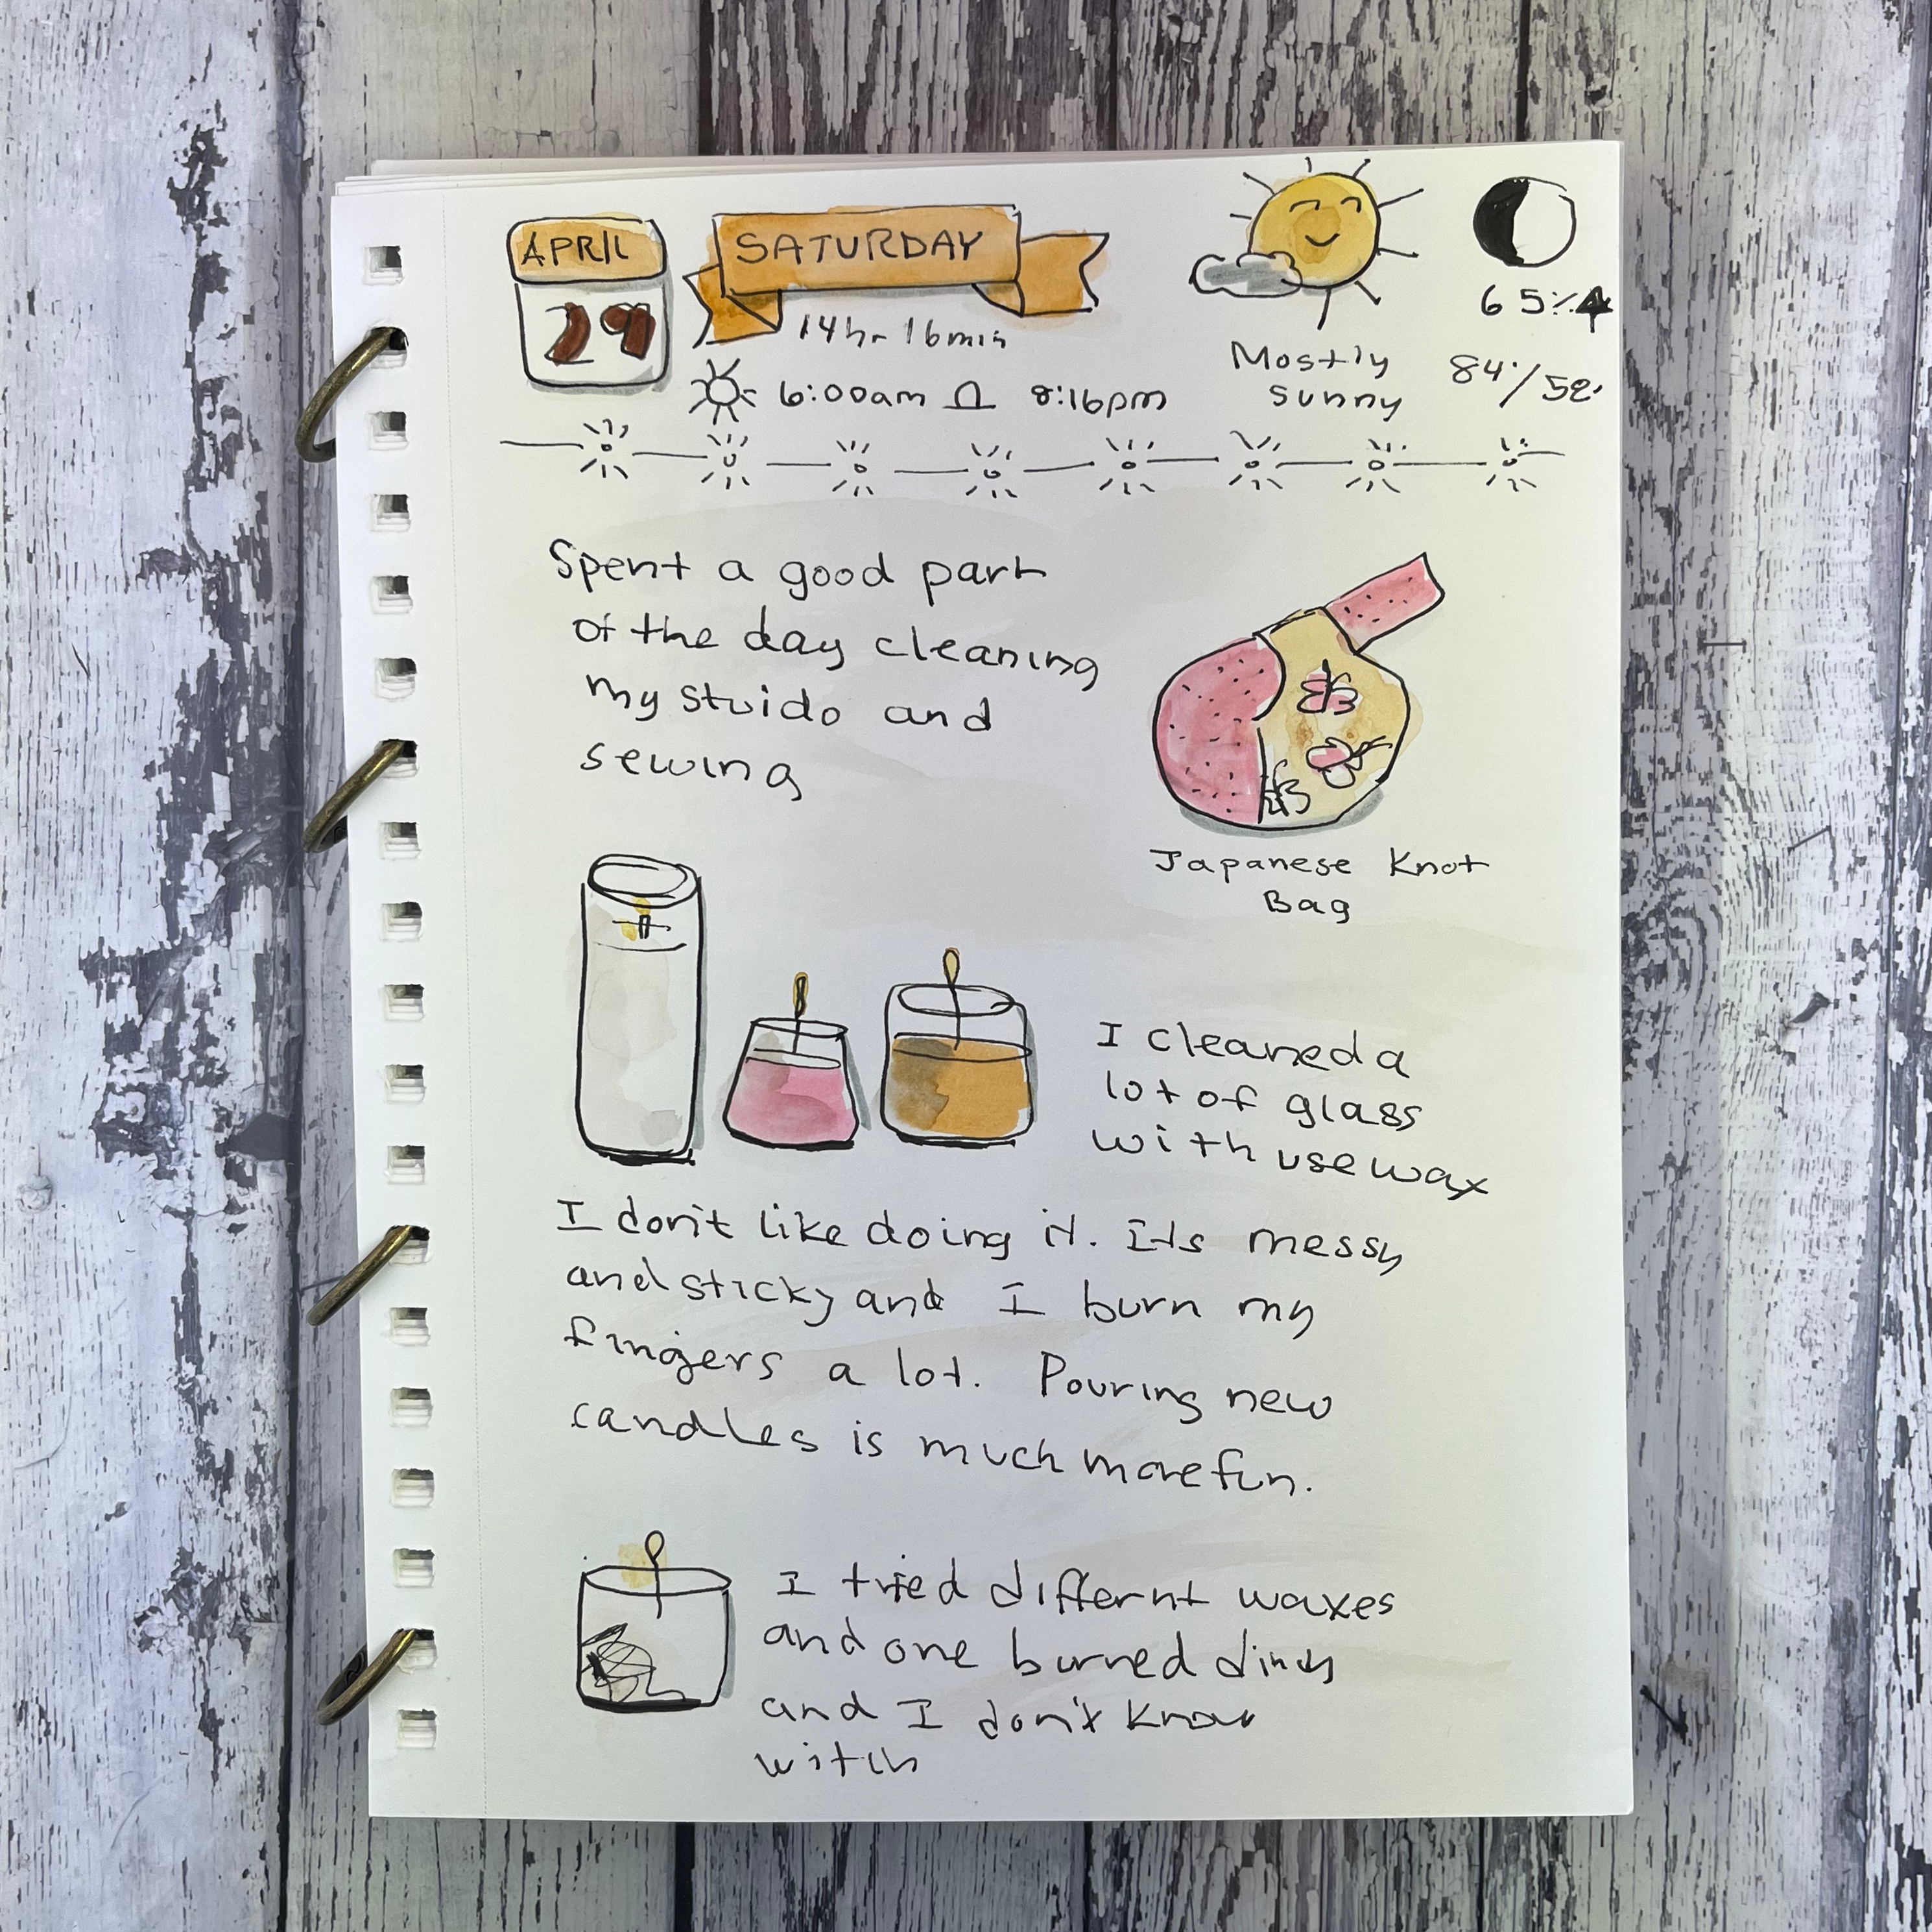 APRIL
29
SATURDAY
14hr 16min
6:00am 8:16pm
Mostly
sunny
65%
84°/52°
Spent a good part
of the day cleaning
my stuido and
sewing
Japanese Knot
Bag
I cleaned a
lot of glass
with use wax
I don't like doing it. Its messy
and sticky and I burn my
fingers a lot. Pouring new
candles is much more fun.
I tried differnt waxes
and one burned dirty
and I don't know
witch